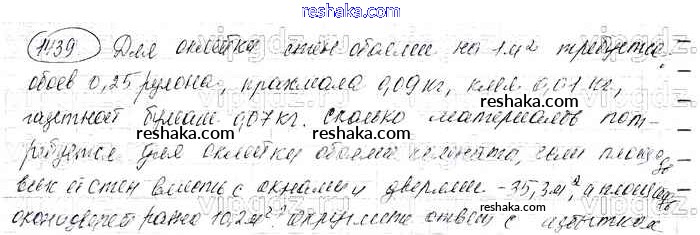 reshaka.ru
1439 Для оклейки стен обоями на 1 м² требуется
обоев 0,25 рулона, крахмала 0,09 кг, клея 0,01 кг,
reshaka.ru
газетной бумаги 0,07 кг. Сколько материалов пот-
reshaka.ru
ребуется для оклейки обоями комнаты, если площадь
reshaka.ru
всей стен вместе с окнами и дверями - 35,3 м², а площадь
окон и дверей равна 10,2 м²? Округлите ответ с избытком
reshaka.ru